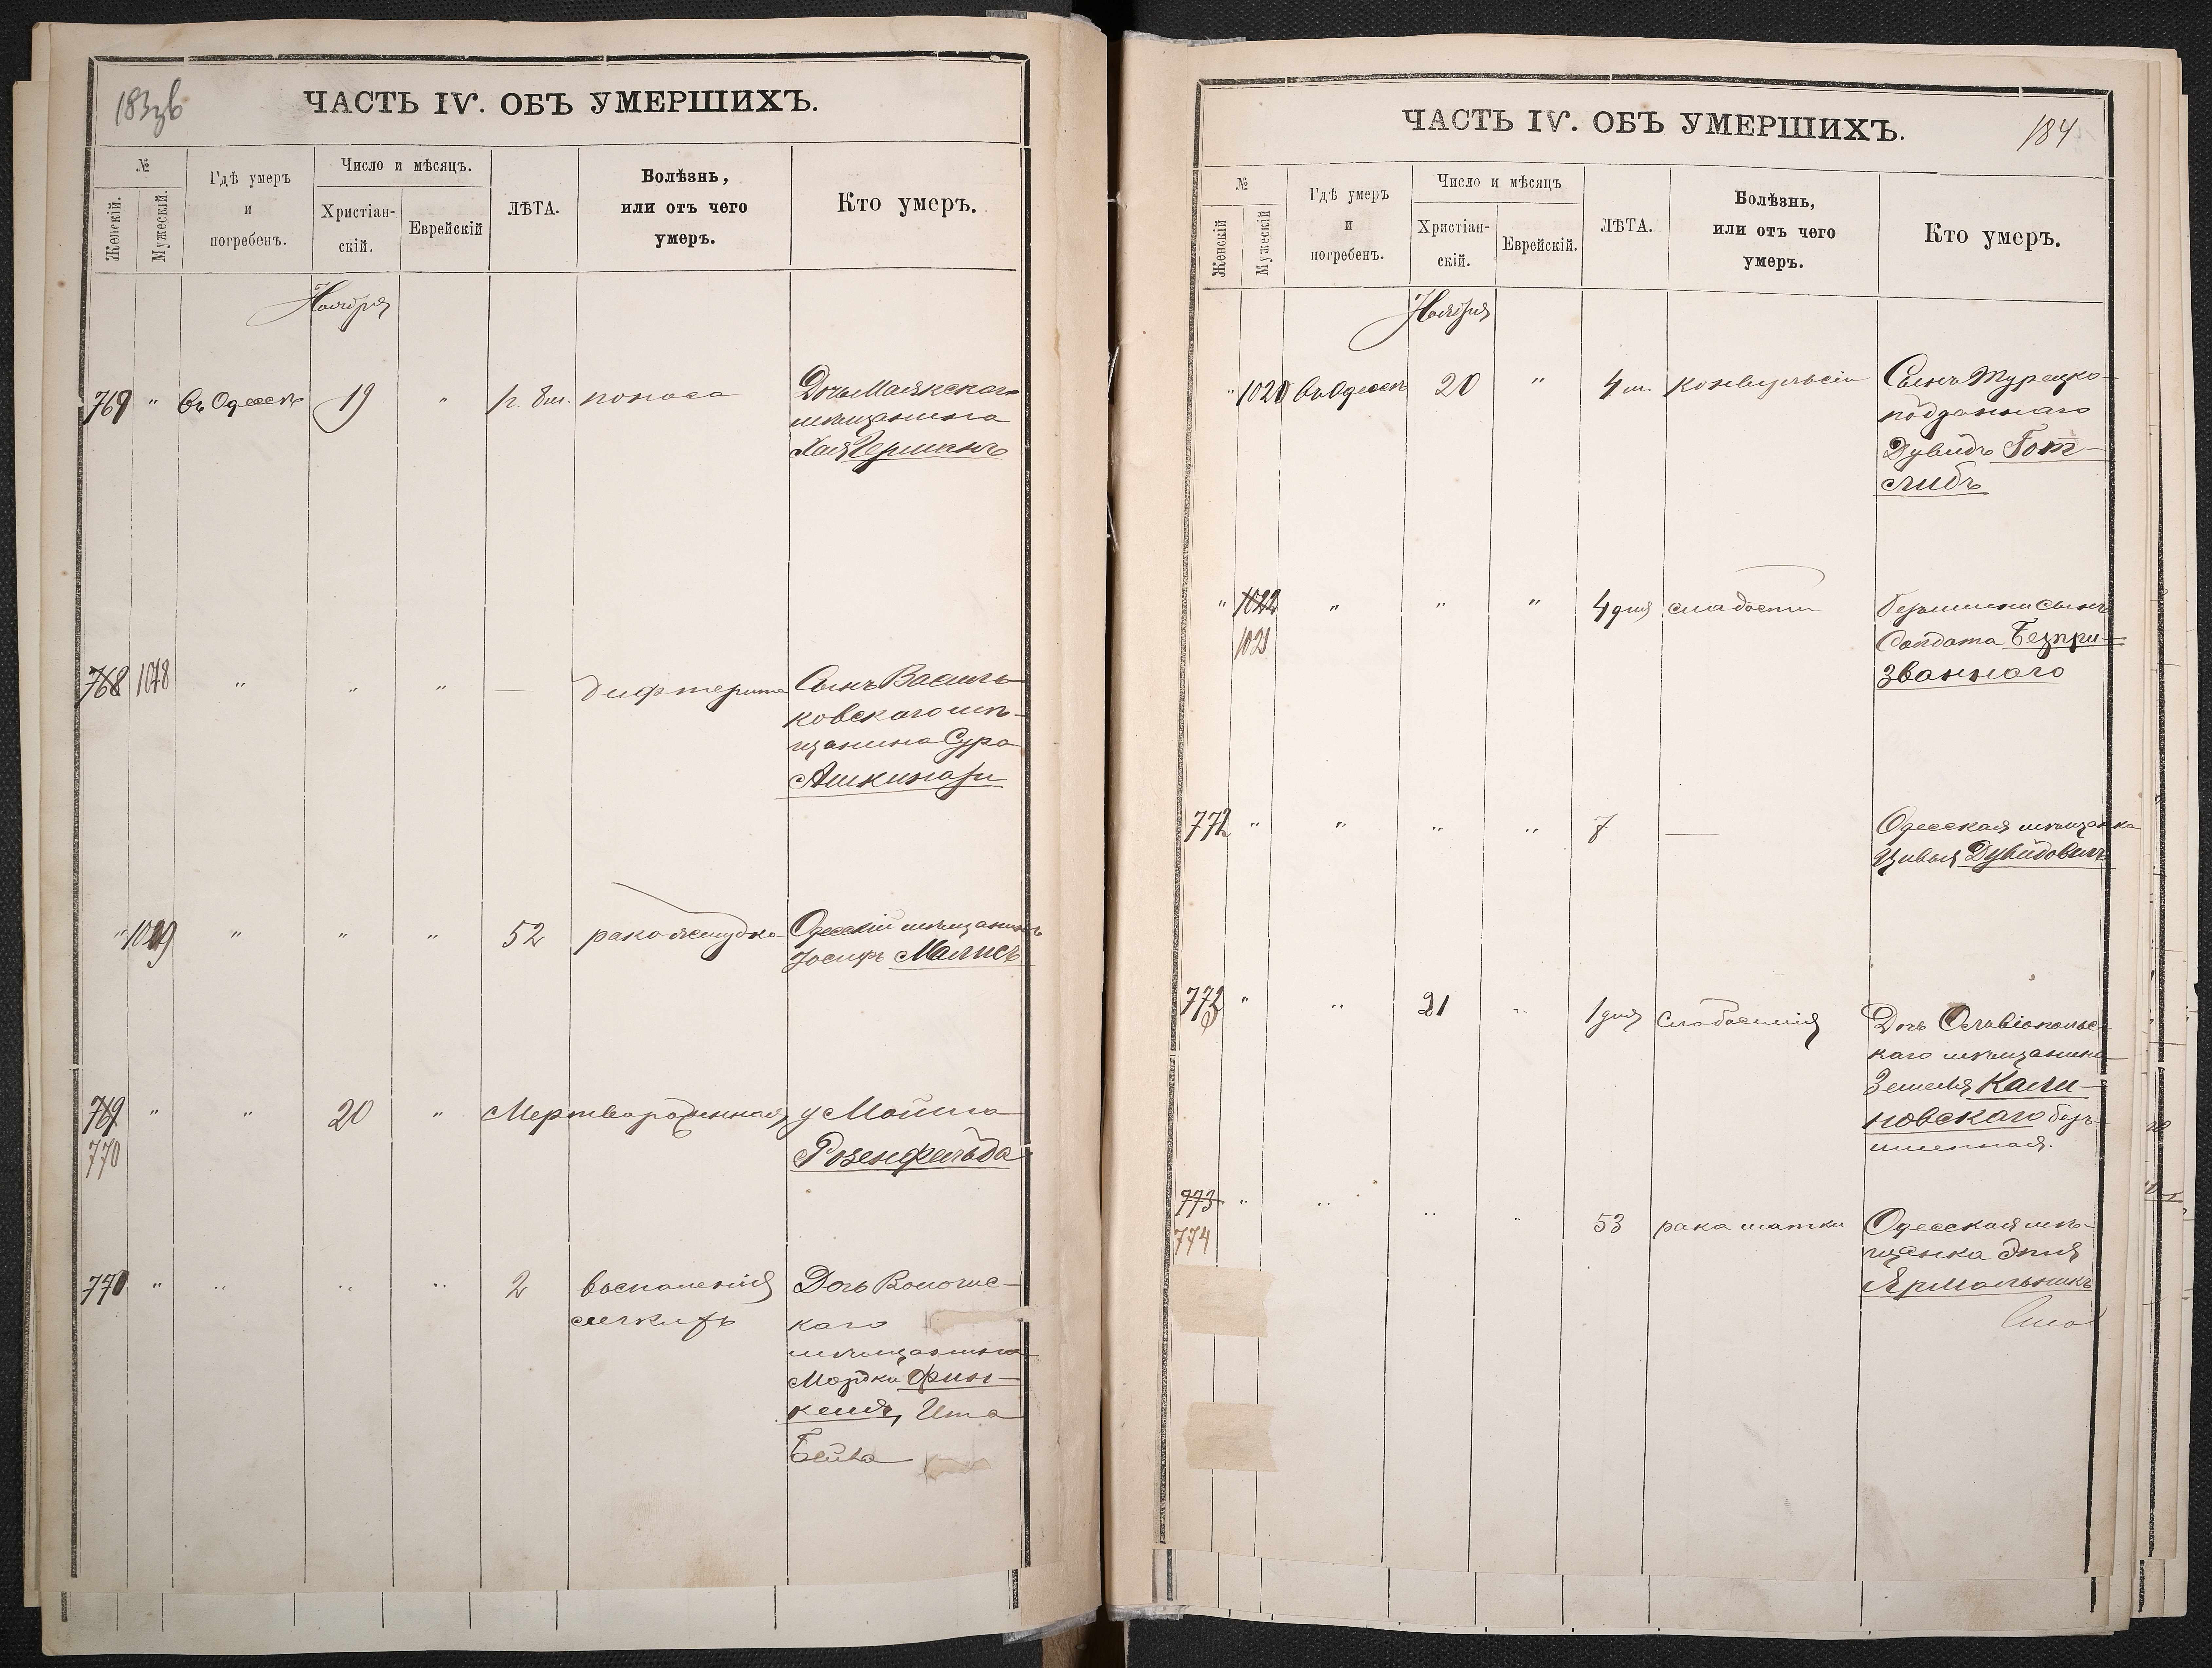 183зв
ЧАСТЬ IV. ОБЪ УМЕРШИХЪ.
№
Женскій.
Мужескій.
Гдѣ умеръ
и
погребенъ.
Число и мѣсяцъ.
Христіан-
скій.
Еврейскій
ЛѢТА.
Болѣзнь,
или отъ чего
умеръ.
Кто умеръ.
Ноября
769 " въ Одессѣ 19 " 1г. 8м. поноса
Дочь Маякскаго
мѣщанина
Хая Германъ
768 1018 " " " — дифтерита
Сынъ Василь-
ковскаго мѣ-
щанина Сура
Ашкинази
" 1019 " " " 52 рака желудка
Одесскій мѣщанинъ
Іосифъ Малисъ
769 " " 20 " Мертворожденная у Мойша
770
Розенфельда
770 " " " " 2 воспаленія
легкихъ
Дочь Волочис-
каго
мѣщанина
Мордки Фин-
келя, Ита
Бейла
184
ЧАСТЬ IV. ОБЪ УМЕРШИХЪ.
№
Женскій
Мужескій
Гдѣ умеръ
и
погребенъ.
Число и мѣсяцъ
Христіан-
скій.
Еврейскій.
ЛѢТА.
Болѣзнь,
или отъ чего
умеръ.
Кто умеръ.
Ноября
" 1020 въ Одессѣ 20 " 4 м. конвульсіи
Сынъ Турецко-
подданнаго
Дувидъ Гот-
либъ
" 1022 " " " 4 дня слабости
1021
сынъ
Солдата Безпри-
званнаго
772 " " " " 7 —
Одесская мѣщанка
Цивья Дувидовичъ
772 " " 21 " 1 дня слабосилія
Дочь Ольвіопольс-
каго мѣщанина
Зельмана Кали-
новскаго безъ-
именная.
773 " " " " 53 рака матки
774
Одесская мѣ-
щанка Этля
Ярмольникъ